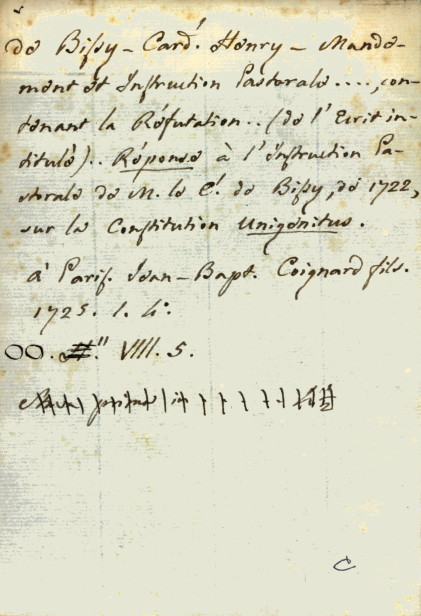 de Bissy - Card. Henry - Mande-
ment et Instruction Pastorale ...., con-
tenant la Réfutation .. (de l'Ecrit in-
titulé) .. Réponse à l'Instruction Pa-
storale de M. le C. de Bissy, de 1722,
sur la Constitution Unigenitus.
à Paris. Jean-Bapt. Coignard fils.
1725. 1. 4°.
OO. " VIII. 5.
C